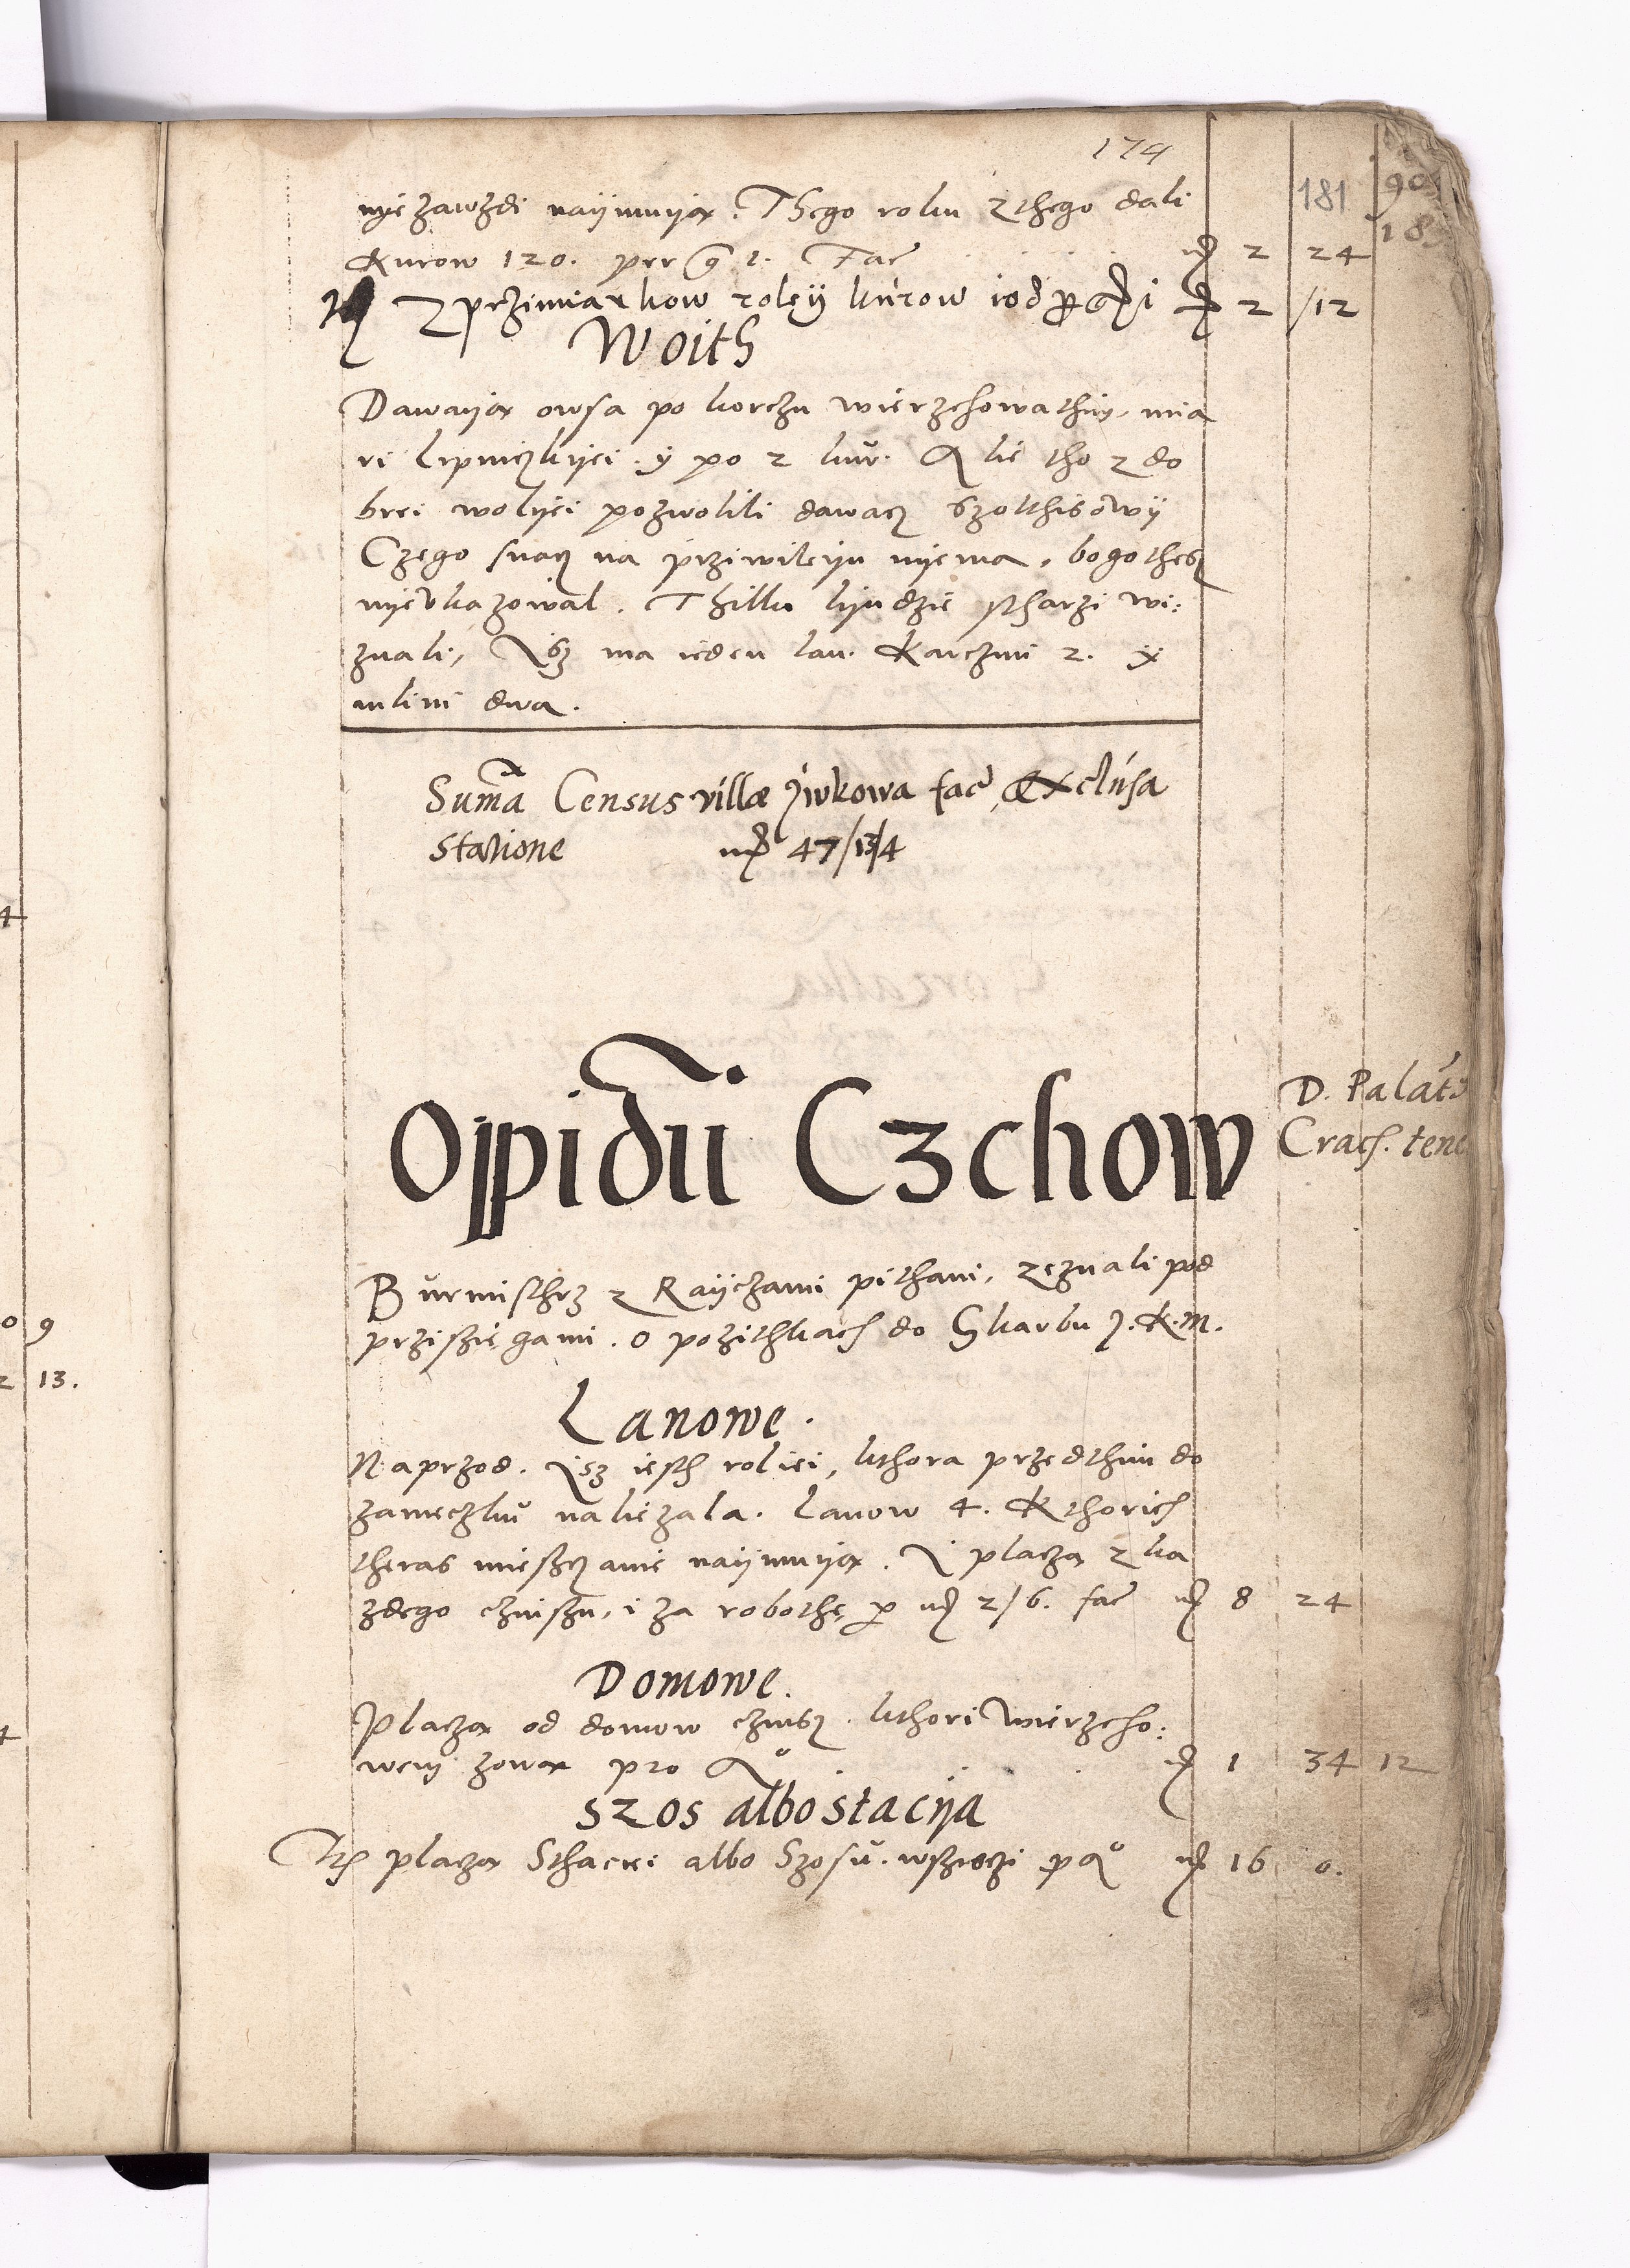 174
181 90
18
nye zawzdi naijmuyą. Thego roku z thego dali
Kurow 120. per g 1. Fac 2 24
Z przimiarkow roleÿ kurow 2 /12
Woith
Dawayą owsa po korczu wierzchowathim, mia
ri lipniczkyei. y po 2 kur. A lie tho z do
brei wolyei pozwolili dawacz Szolthisowÿ
Czego snacz na prziwileyu nyema, bo go thesz
nye vkazowal. Thilko lyudzie stharzi wi:
znali, Isz ma ieden lan. Karczmi 2. y
mlini dwa.
Suma Census villæ Jwkowa fac, Exclusa
Statione 47/13/4
Oppidu Czchow
D. Palat
Crac. tene
Burmisthrz z Rayczami pithani, zeznali pod
przisziegami. o pozithkach do Skarbu J.K.M.
Lanowe.
Naprzod. Isz iesth roliei, kthora przedthim do
zameczku naliezala. Lanow 4. Kthorich
theras mieszczanie naijmuyą. I placzą z ka
zdego czinszu, i za robothę 2/6. fac 8 24
Domowe.
Placzą od domow czinsz. kthori Wierzcho:
wem zową pro Ao 1 34 12
Szos albo stacÿa
Ité placzą Sthaciei albo Szosu. wsziczi p Ao 16 0.
4
0 9
2 13.
4